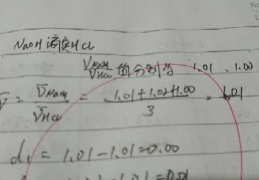 NaOH 滴定HCl
V_NaOH/V_HCl 的分别为 1.01, 1.00
V̄ = V̄_NaOH/V̄_HCl = (1.01+1.02+1.00)/3 = 1.01
d₁ = 1.01-1.01=0.00